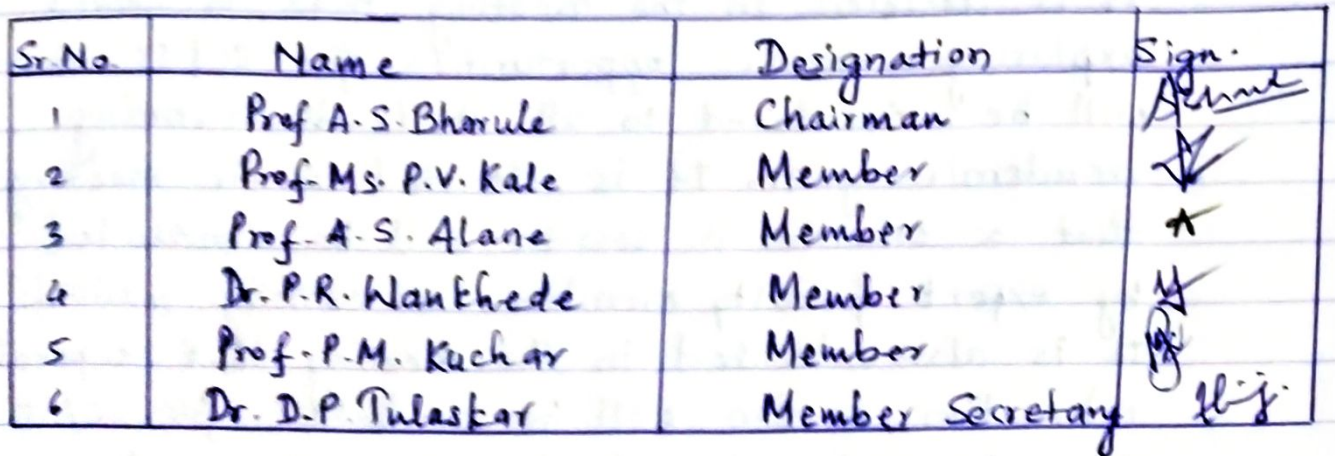 Sr. No. Name Designation Sign.
1 Prof A. S. Bhorule Chairman
2 Prof. Ms. P. V. Kale Member
3 Prof. A. S. Alane Member
4 Dr. P. R. Wankhede Member
5 Prof. P. M. Kuchar Member
6 Dr. D. P. Tulaskar Member Secretary